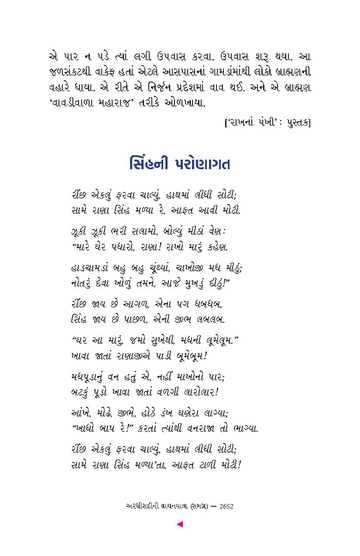 એ પાર ન પડે ત્યાં લગી ઉપવાસ કરવા. ઉપવાસ શરૂ થયા. આ
જળસંકટથી વાકેફ હતાં એટલે આસપાસનાં ગામડાંમાંથી લોકો બ્રાહ્મણની
વહારે ધાયા. એ રીતે એ નિર્જન પ્રદેશમાં વાવ થઈ. અને એ બ્રાહ્મણ
‘વાવડીવાળા મહારાજ’ તરીકે ઓળખાયા.
[‘રાખનાં પંખી’ : પુસ્તક]
સિંહની પરોણાગત
રીંછ એકલું ફરવા ચાલ્યું, હાથમાં લીધી સોટી;
સામે રાણા સિંહ મળ્યા રે, આફત આવી મોટી.
ઝૂકી ઝૂકી ભરી સલામો, બોલ્યું મીઠાં વેણ:
“મારે ઘેર પધારો, રાણા! રાખો મારું કહેણ.
હાડચામડાં બહુ બહુ ચૂંથ્યાં, ચાખોજી મધ મીઠું;
નોતરું દેવા ખોળું તમને, આજે મુખડું દીઠું!”
રીંછ જાય છે આગળ, એના પગ ધબધબ,
સિંહ જાય છે પાછળ, એની જીભ લબલબ.
“ઘર આ મારું, જમો સુખેથી, મધની લૂમેલૂમ.”
ખાવા જાતાં રાણાજીએ પાડી બૂમેબૂમ!
મધપૂડાનું વન હતું એ, નહીં માખોનો પાર;
બટકું પૂડો ખાવા જાતાં વળગી લારોલાર!
આંખે, મોઢે, જીભે, હોઠે ડંખ ઘણેરા લાગ્યા;
“ખાધો બાપ રે!” કરતાં ત્યાંથી વનરાજા તો ભાગ્યા.
રીંછ એકલું ફરવા ચાલ્યું, હાથમાં લીધી સોટી;
સામે રાણા સિંહ મળ્યા’તા, આફત ટાળી મોટી!
અરધીસદીની વાચનયાત્રા (સમગ્ર) — 2652